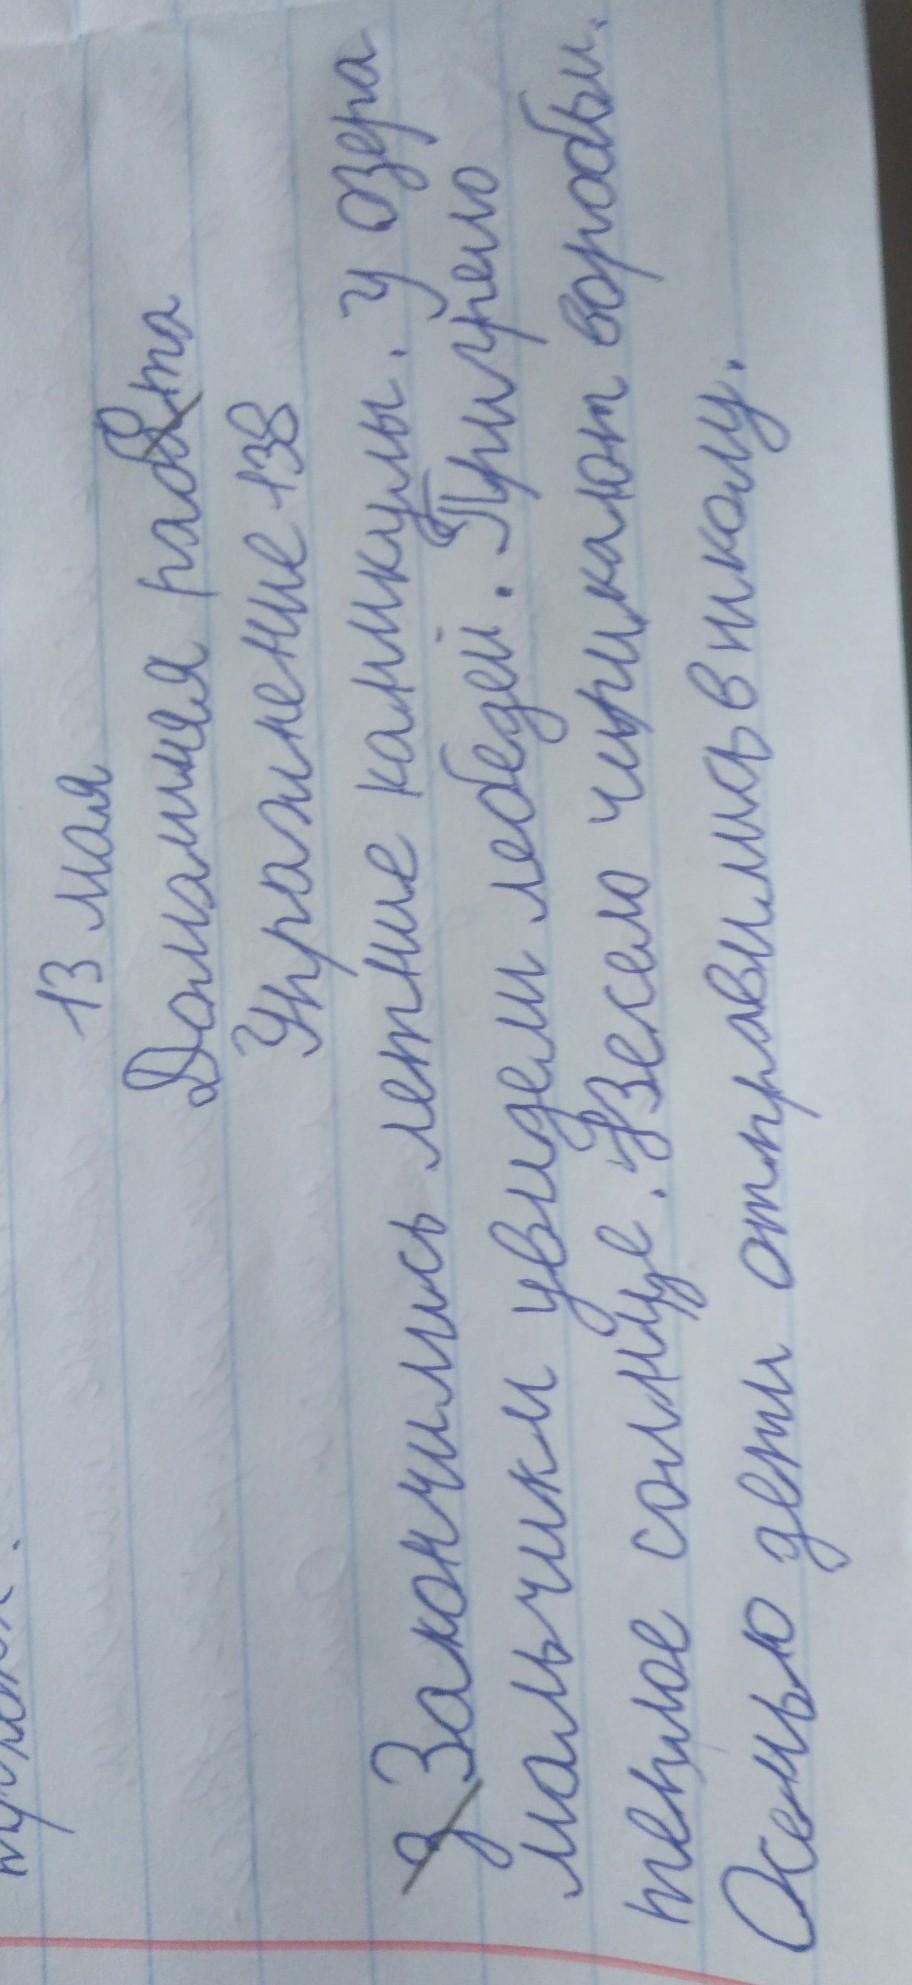 13 мая
Домашняя работа
Упражнение 138
Закончились летние каникулы. У озера
мальчики увидели лебедей. Пригрело
теплое солнце. Весело чирикают воробьи.
Осенью дети отправились в школу.